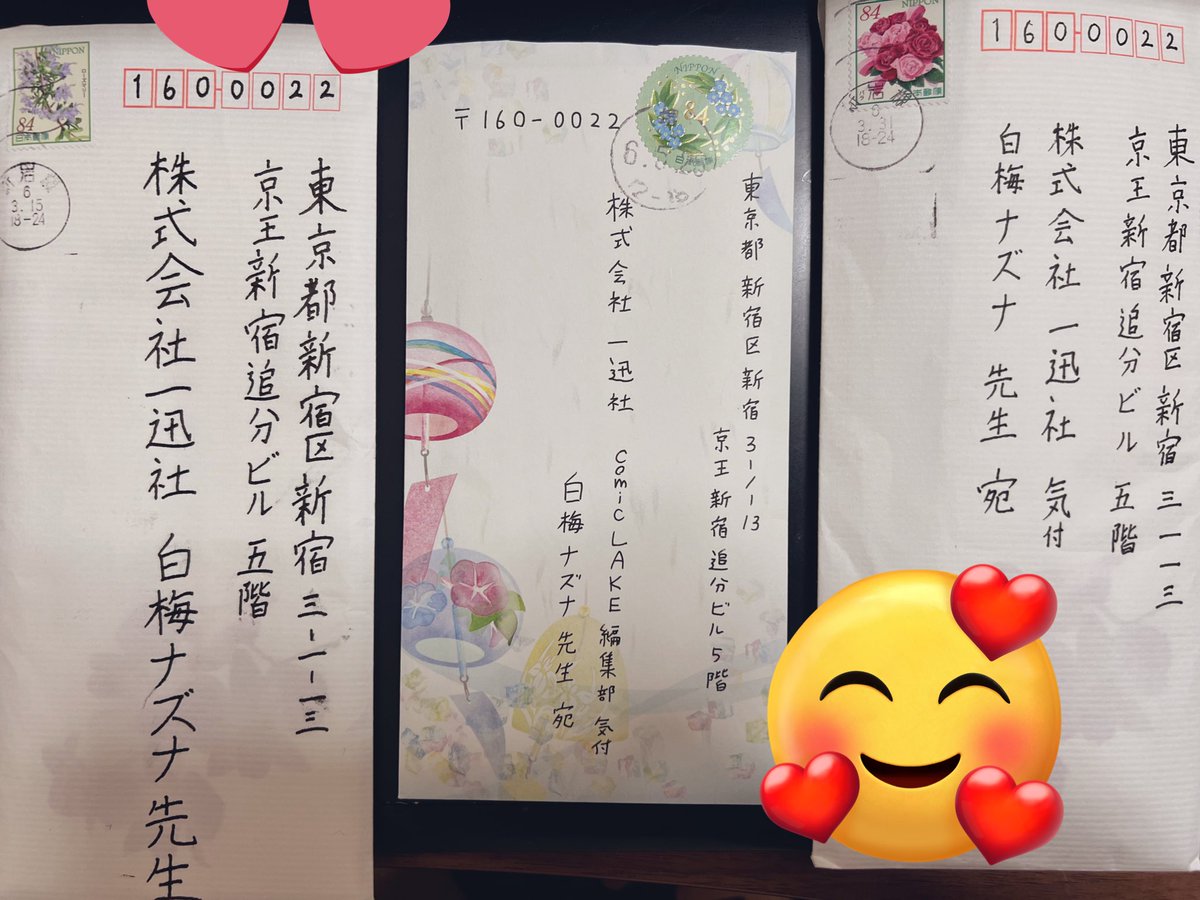 NIPPON
84
日本郵便
6
3.15
18-24
160-0022
東京都新宿区新宿 三-一-一三
京王新宿追分ビル 五階
株式会社一迅社 白梅ナズナ 先生
〒160-0022
NIPPON
84
日本郵便
東京都 新宿区 新宿 3-1-13
京王 新宿 追分ビル5階
株式会社 一迅社 comic LAKE 編集部 気付
白梅ナズナ 先生 宛
NIPPON
84
日本郵便
3.31
18-24
160-0022
東京都 新宿区 新宿 三一一三
京王 新宿 追分ビル 五階
株式会社 一迅社 気付
白梅ナズナ 先生 宛